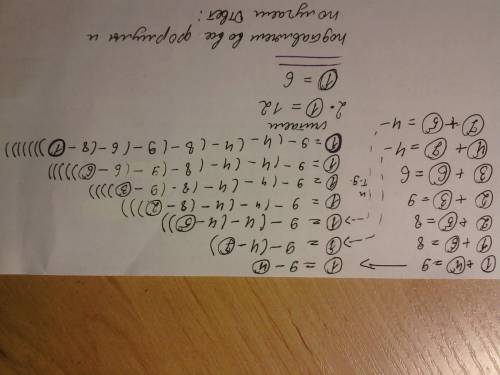 ① + ④ = 9 → ① = 9 - ④
① + ⑥ = 8 ① = 9 - (4 - ⑦)
② + ⑤ = 8 ① = 9 - (4 - (4 - ⑤))
② + ③ = 9 ① = 9 - (4 - (4 - (8 - ②)))
③ + ⑥ = 6 и т.д. ① = 9 - (4 - (4 - (8 - (9 - ③))))
④ + ⑦ = 4 ① = 9 - (4 - (4 - (8 - (9 - (6 - ⑥)))))
⑦ + ⑤ = 4 ① = 9 - (4 - (4 - (8 - (9 - (6 - (8 - ①))))))
считаем
2 · ① = 12
① = 6
подставляем во все формулы и
получаем ответ: